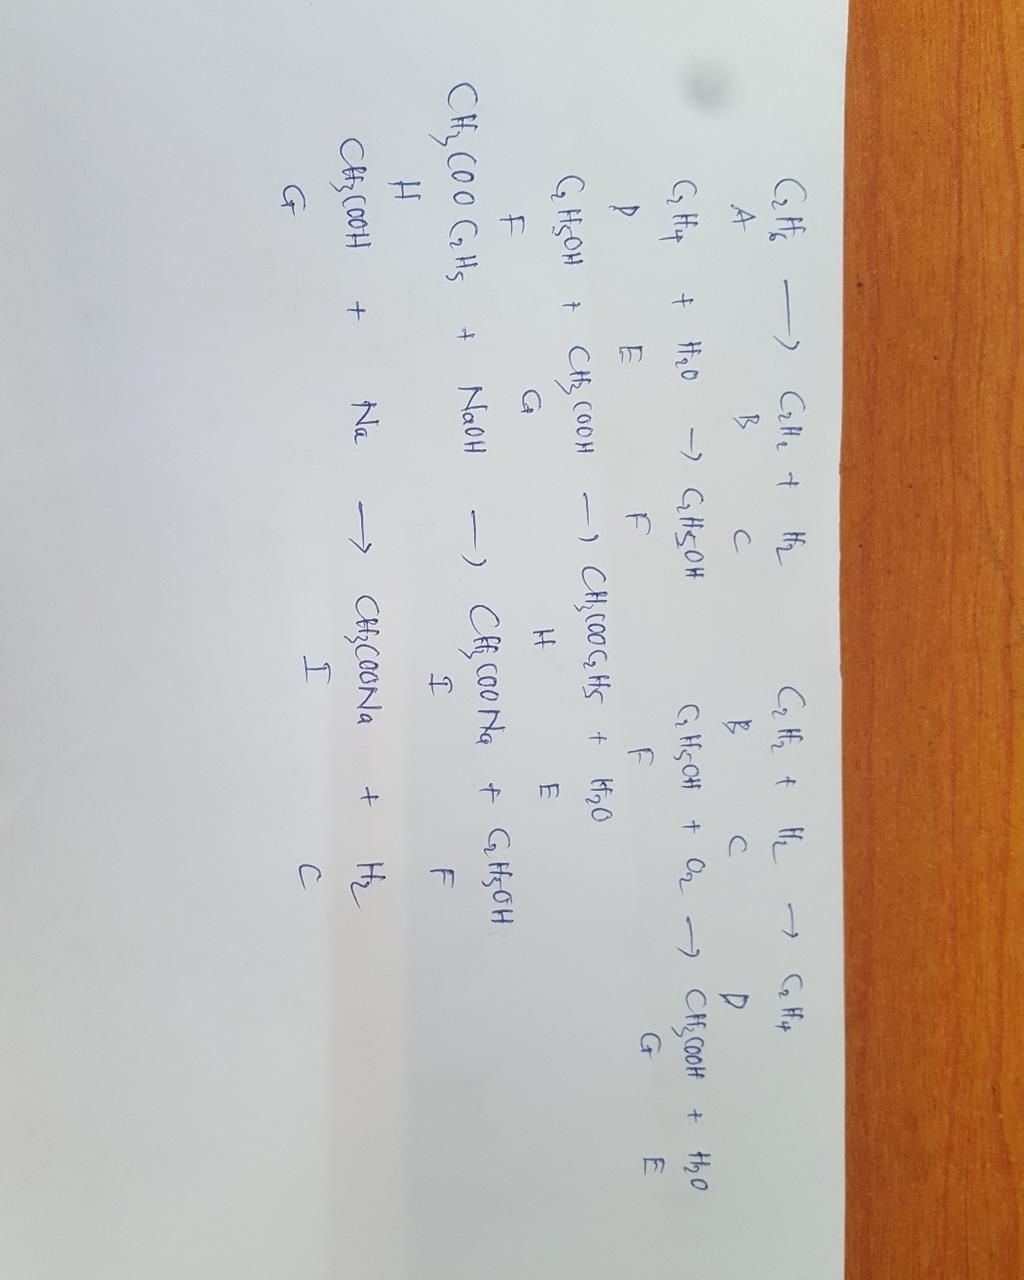 C₂H₆ ⟶ C₂H₂ + H₂ C₂H₂ + H₂ → C₂H₄
A B C B C D
C₂H₄ + H₂O → C₂H₅OH C₂H₅OH + O₂ → CH₃COOH + H₂O
D E F F G E
C₂H₅OH + CH₃COOH → CH₃COOC₂H₅ + H₂O
F G H E
CH₃COOC₂H₅ + NaOH → CH₃COONa + C₂H₅OH
H I F
CH₃COOH + Na → CH₃COONa + H₂
G I C